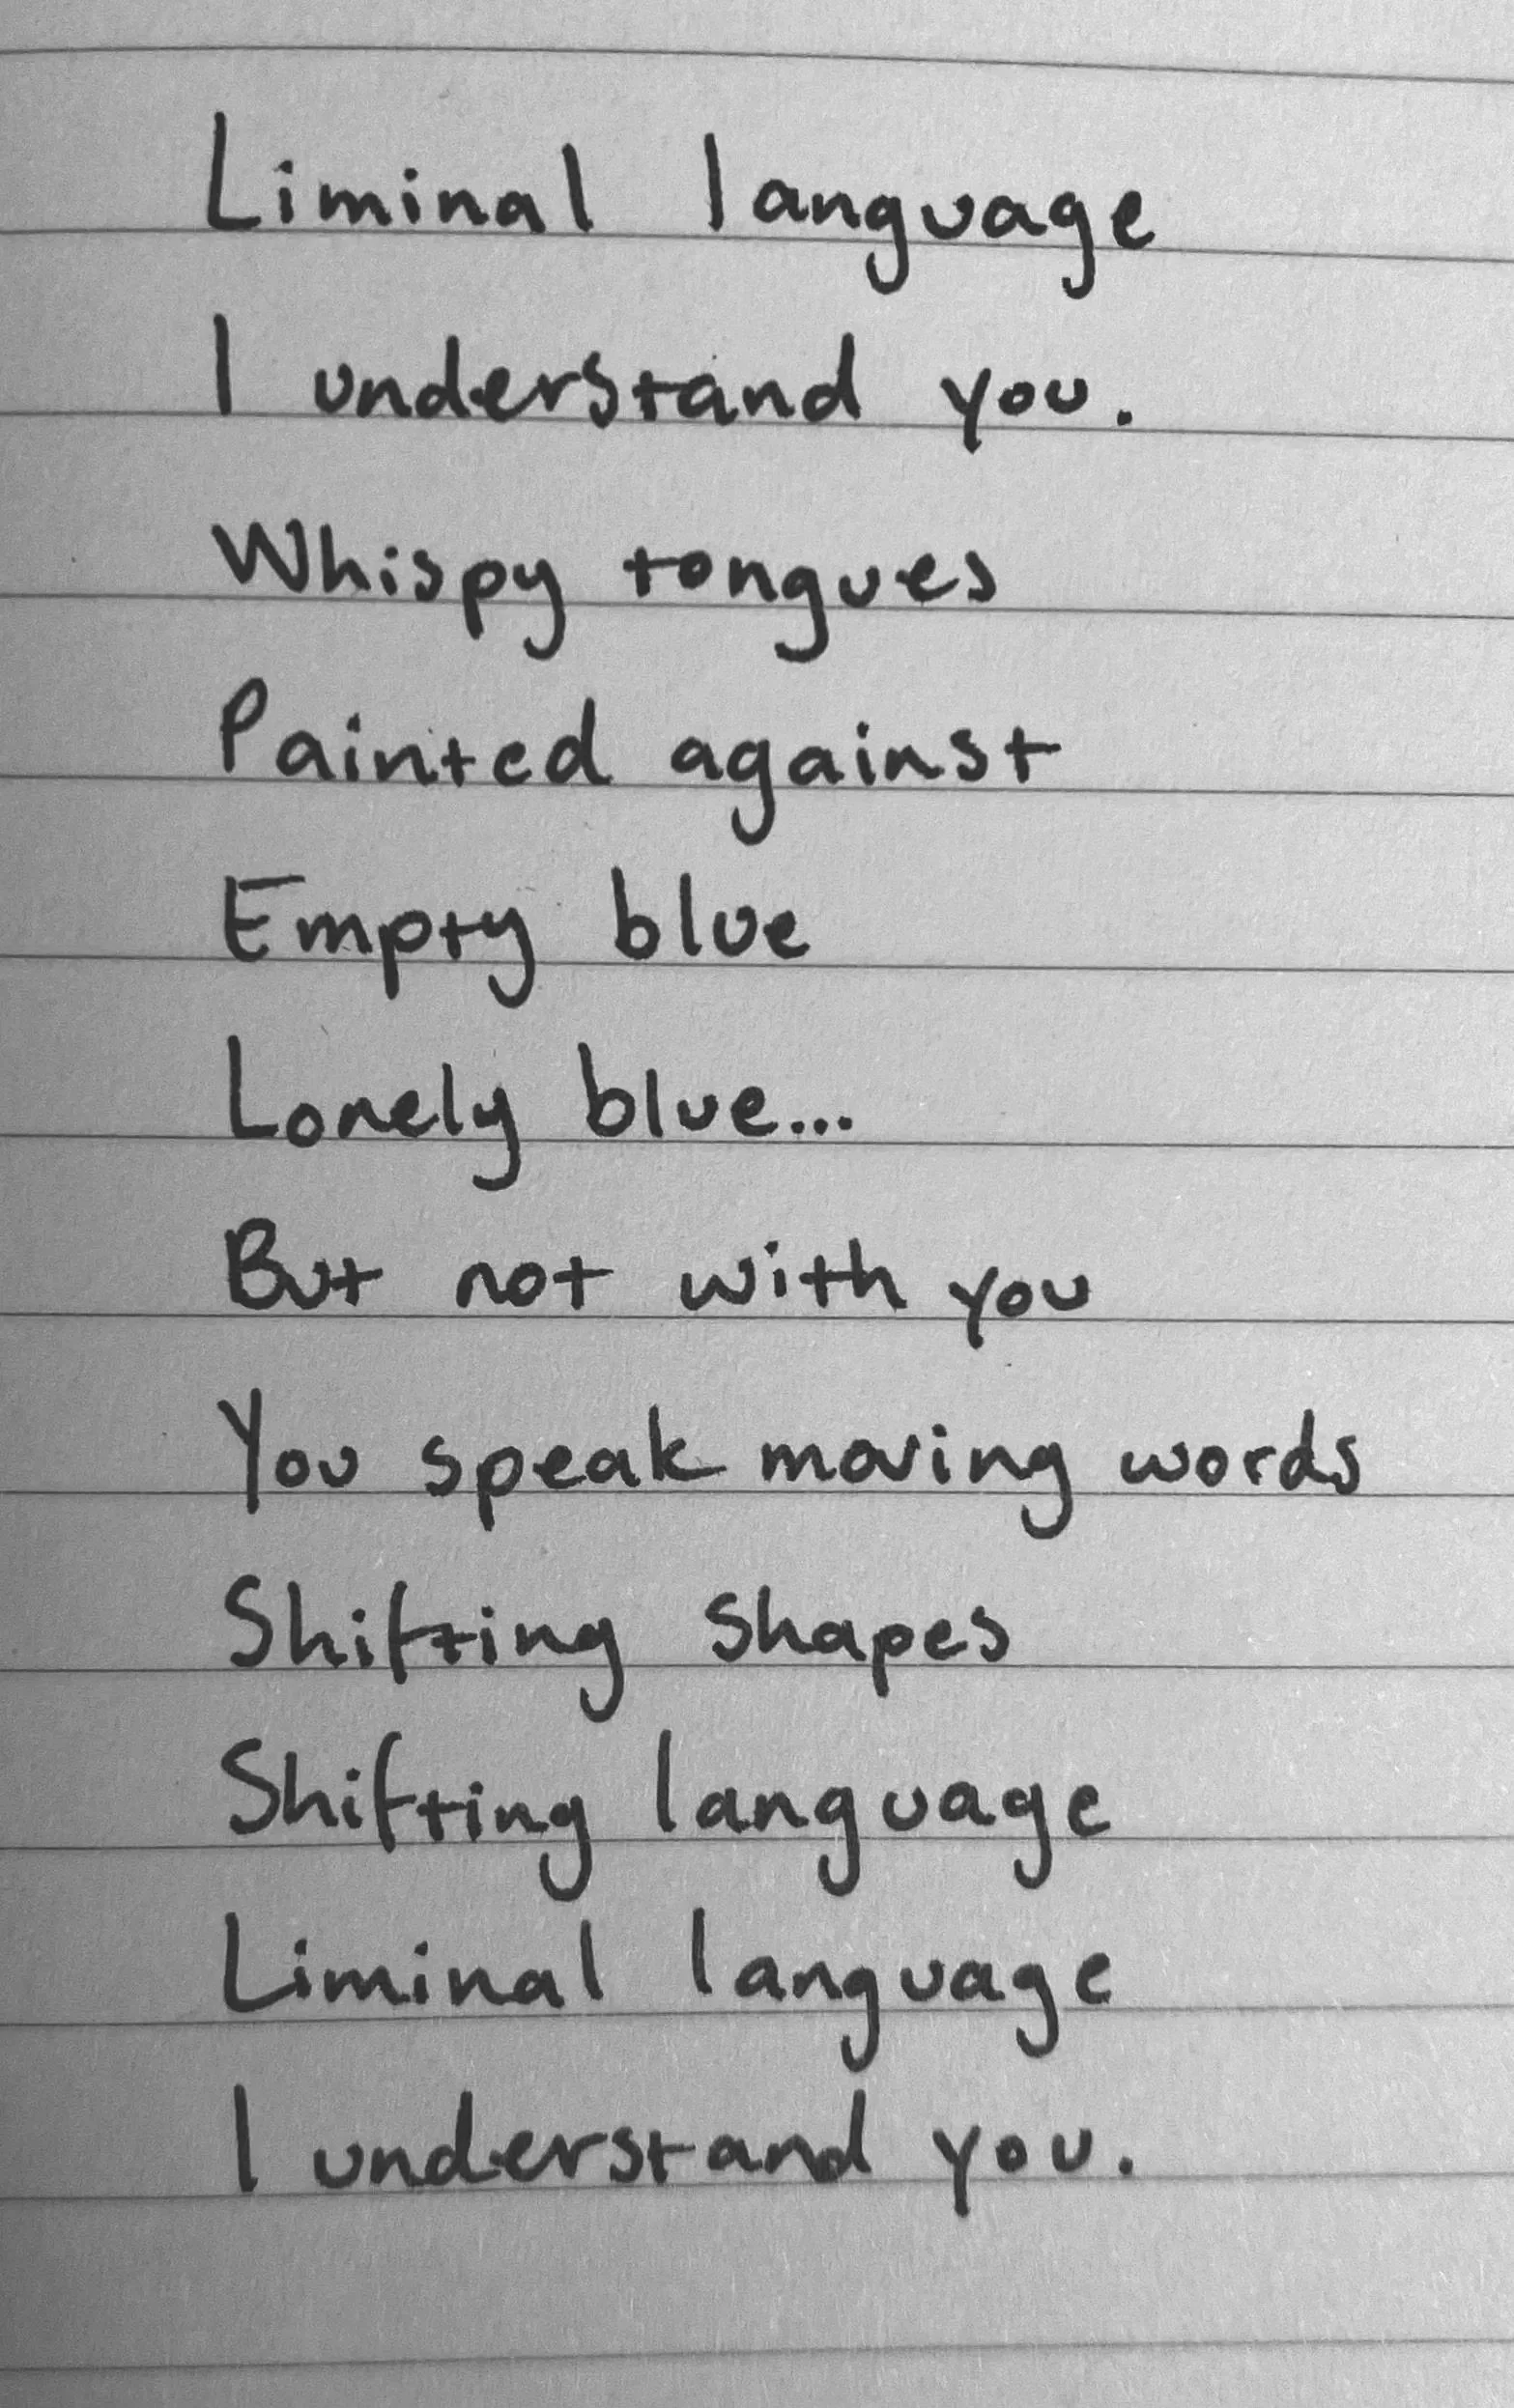 Liminal language
I understand you.
Whispy tongues
Painted against
Empty blue
Lonely blue...
But not with you
You speak moving words
Shifting shapes
Shifting language
Liminal language
I understand you.